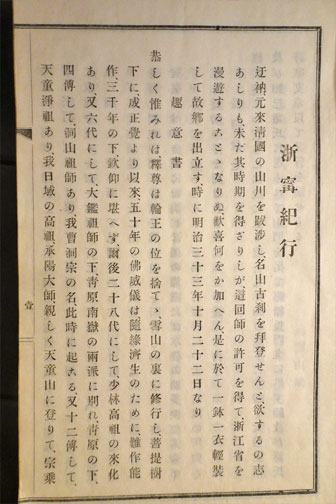 浙甯紀行
迂衲元來淸國の山川を跋涉し名山古刹を拜登せんと欲するの志
ありしも、未た其時期を得ざりしが這回師の許可を得て、浙江省を
漫遊することゝなりぬ歡喜何をか加へん是に於て一鉢一衣輕裝
して故鄕を出立す、時に明治三十三年十月二十二日なり
趣意書
恭しく惟みれは釋尊は輪王の位を捨てゝ雪山の裏に修行し、菩提樹
下に、成正覺より以來、五十年の佛威儀は隨緣濟生のために、難作能
作、三千年の下欽仰に堪へず、爾後二十八代にして、少林高祖の來化
あり、又六代にして大鑑祖師の下、靑原南嶽の兩派に別れ靑原の下、
四傳して、洞山祖師あり我曹洞宗の名、此時に起こる又十二傳して、
天童淨祖あり、我日域の高祖、承陽大師親しく天童山に登りて、宗乘
壹